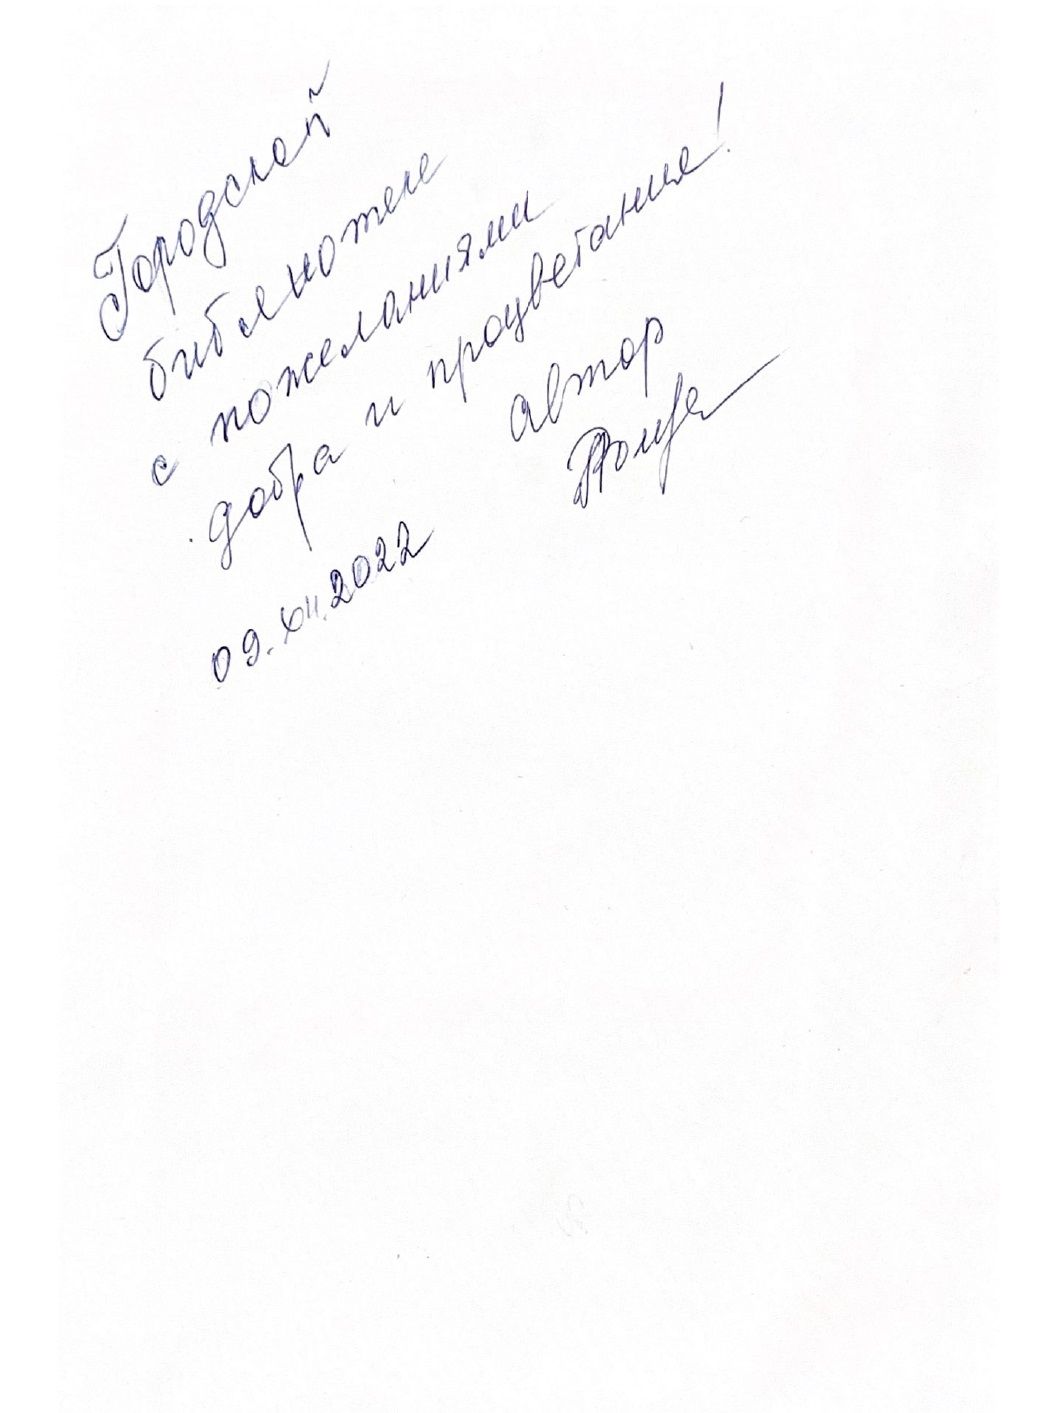 Городской
библиотеке
с пожеланиями
добра и процветания!
автор
09.XII.2022